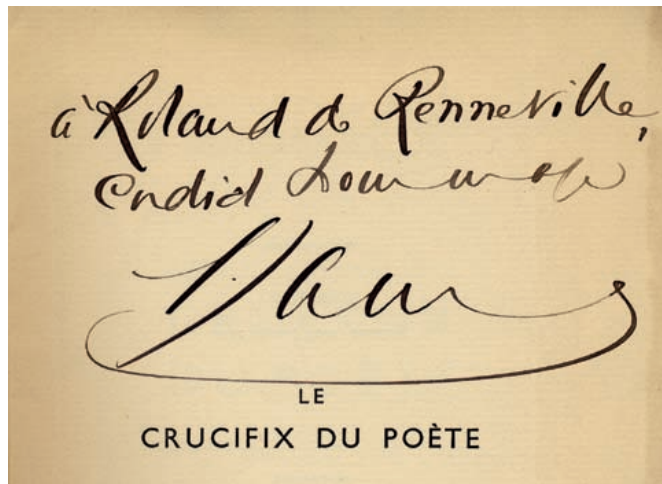 à Roland de Renneville,
Cordial hommage
LE
CRUCIFIX DU POÈTE